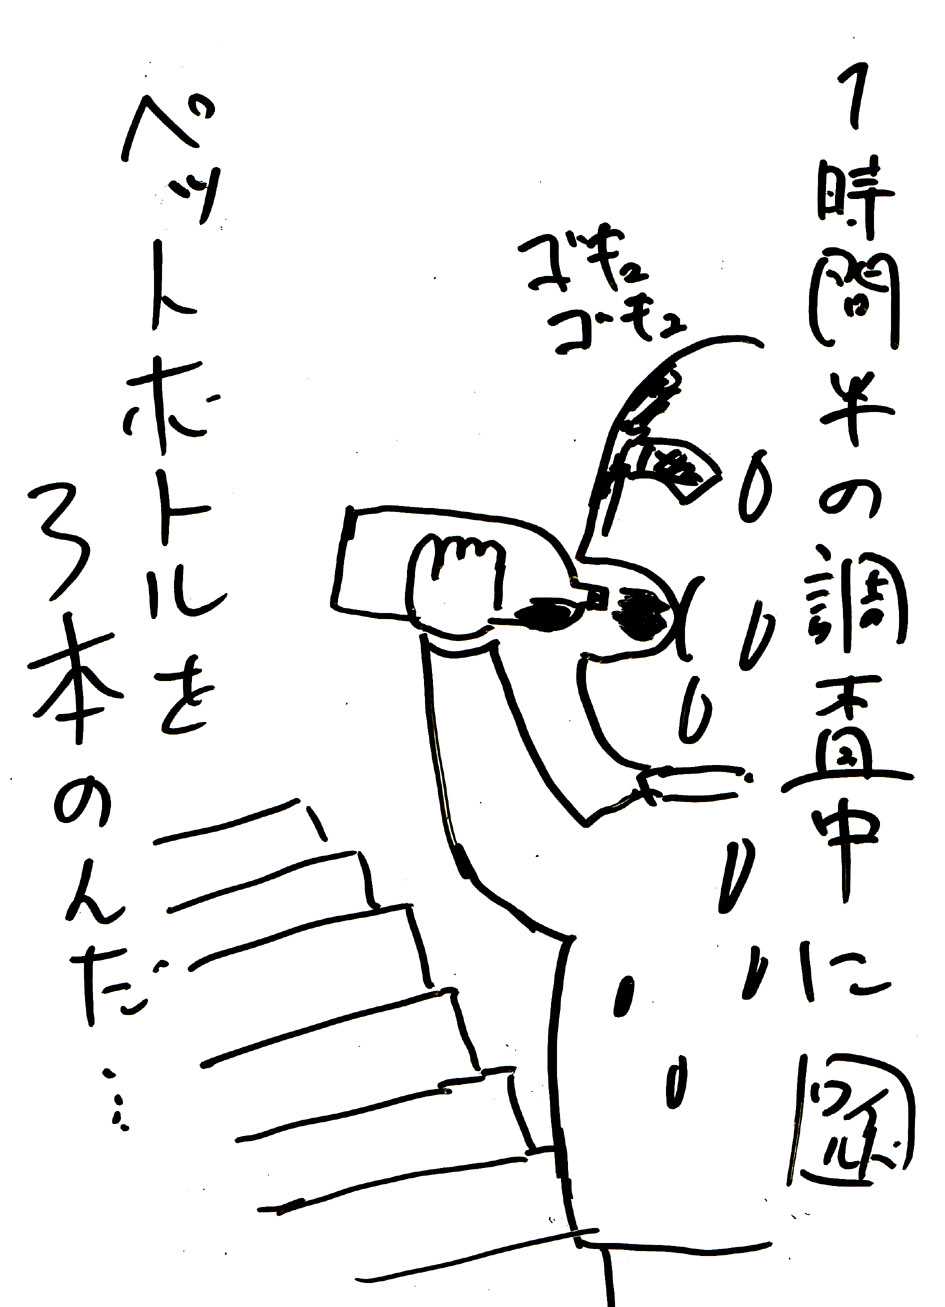 1時間半の調査中に
ワイルド
ゴキュ
ゴキュ
ペットボトルを
3本のんだ…